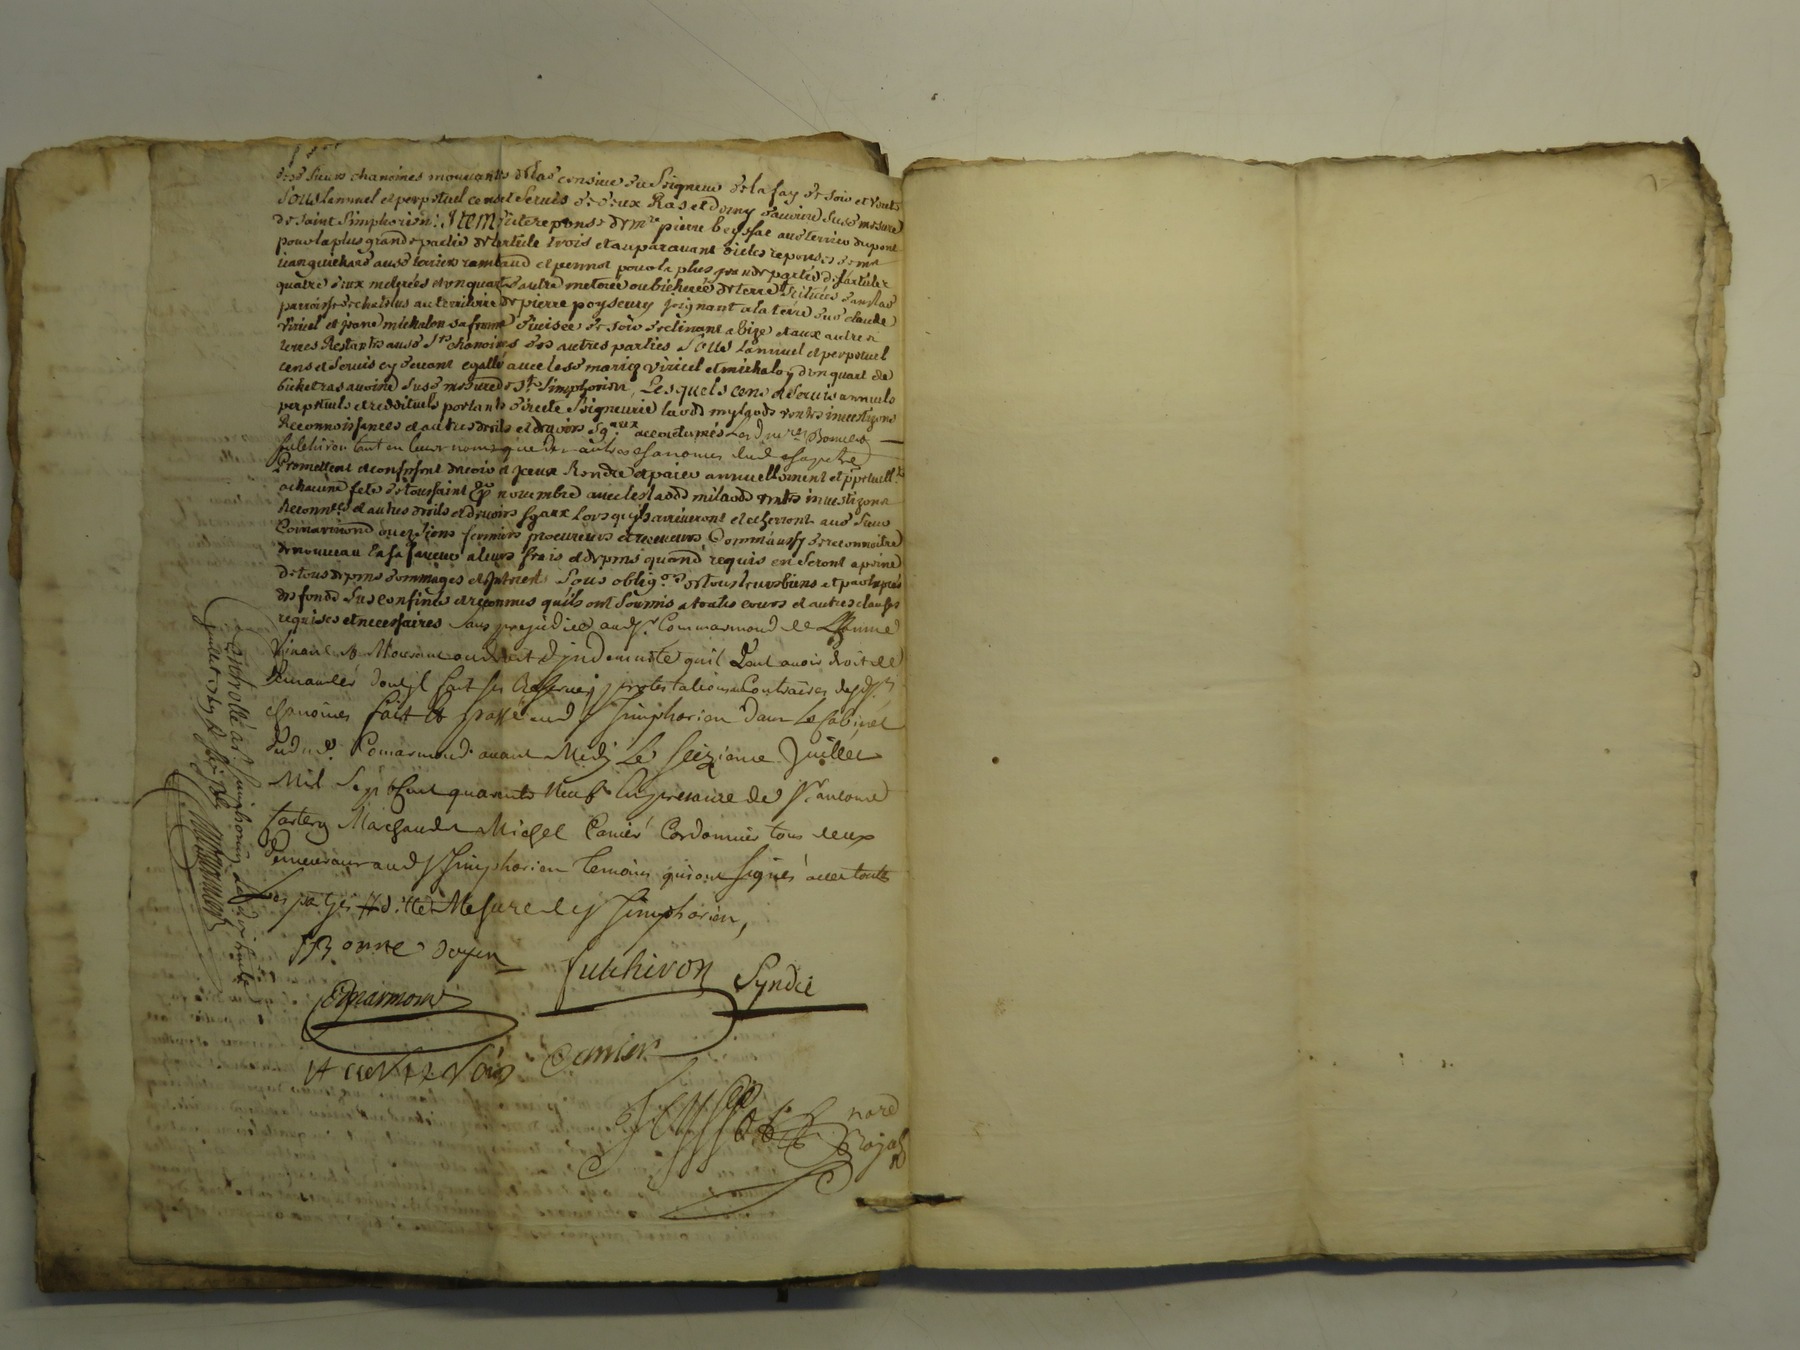 desd Sieurs chanoines mouvants de la censive du Seigneur de la fay de soir et
Sous lannuel et perpetuel cens et Servis de deux Ras et demy davoine Susd mesure
de Saint Simphorien: Item de la reponse de Mre pierre beyssac aud terrier dupont
pour la plus grande partie de article trois et auparavant dicles reponses de me
aud terrier rambaud et pernot pour la plus grande partie de larticle
quatre deux metgées et un quart dautre metereé ou bicheréé de terre Scituées dans lad
parroisse de chatelus au territoire de pierre poyseury Joignant a la terre dud claude
Viricel et jeane michalon sa femme divisée de soir declinant a bize et aux autres
terres Restants ausd Srs chanoines des autres parties Sous lannuel et perpetuel
cens et Servis cy devant egallé avec lesd mariez Viricel et michalon dun quart de
bichet ras avoine Susd mesure de St Simphorien, Lesquels cens et Servis annuels
perpetuels et reddituels portants directe Seigneurie laods mylaods ventes investizons
Reconnoissances et autres droits et devoirs Sgaux accoutumés Lesd mrs Bonne et
fulchiron tant en leurs noms que des autres chanoines dud chapitre
Promettent et confessent devoir et jceux Rendre et paier annuellement et pptuellt
a chacune fete de toussaint per novembre avec les laods milaods ventes investizons
Reconnces et autres droits et devoirs Sgaux Lorsquils arriveront et echerront aud Sieur
Comarmond ou ez siens fermiers procureurs et receveurs Comm aussy de reconnoitre
de nouveau En sa faveur a leurs frais et depens quand requis en Seront a peine
de tous depens dommages et Jnterets Sous obligon de tous leurs biens et par exprés
des fonds Sus confinés et reconnus quils ont Soumis a toutes cours et autres clauses
requises et necessaires Sans prejudice aud Sr Commarmond de Lhomme
Vivant et Mourant ou droit djndemnité quil Peut avoir droit de
Demander dont jl fait Ses Reserves, protestations Contraires desd Srs
chanoines fait et passé aud St Simphorien dans le Cabinet
dud Sr Comarmond avant Midy le Seizieme Juillet
Mil Sept Cent quarante Neuf En presence de Sr antoine
Marchand et Michel Canier Cordonnier tous deux
demeurant aud St Simphorien temoins qui ont Signés avec toutes
les parties Mesure de St Simphorien,
Bonne doyen
fulchiron Syndic
Comarmond
Canier
nore
Royal
Controllé a St Simphorien
Comarmond